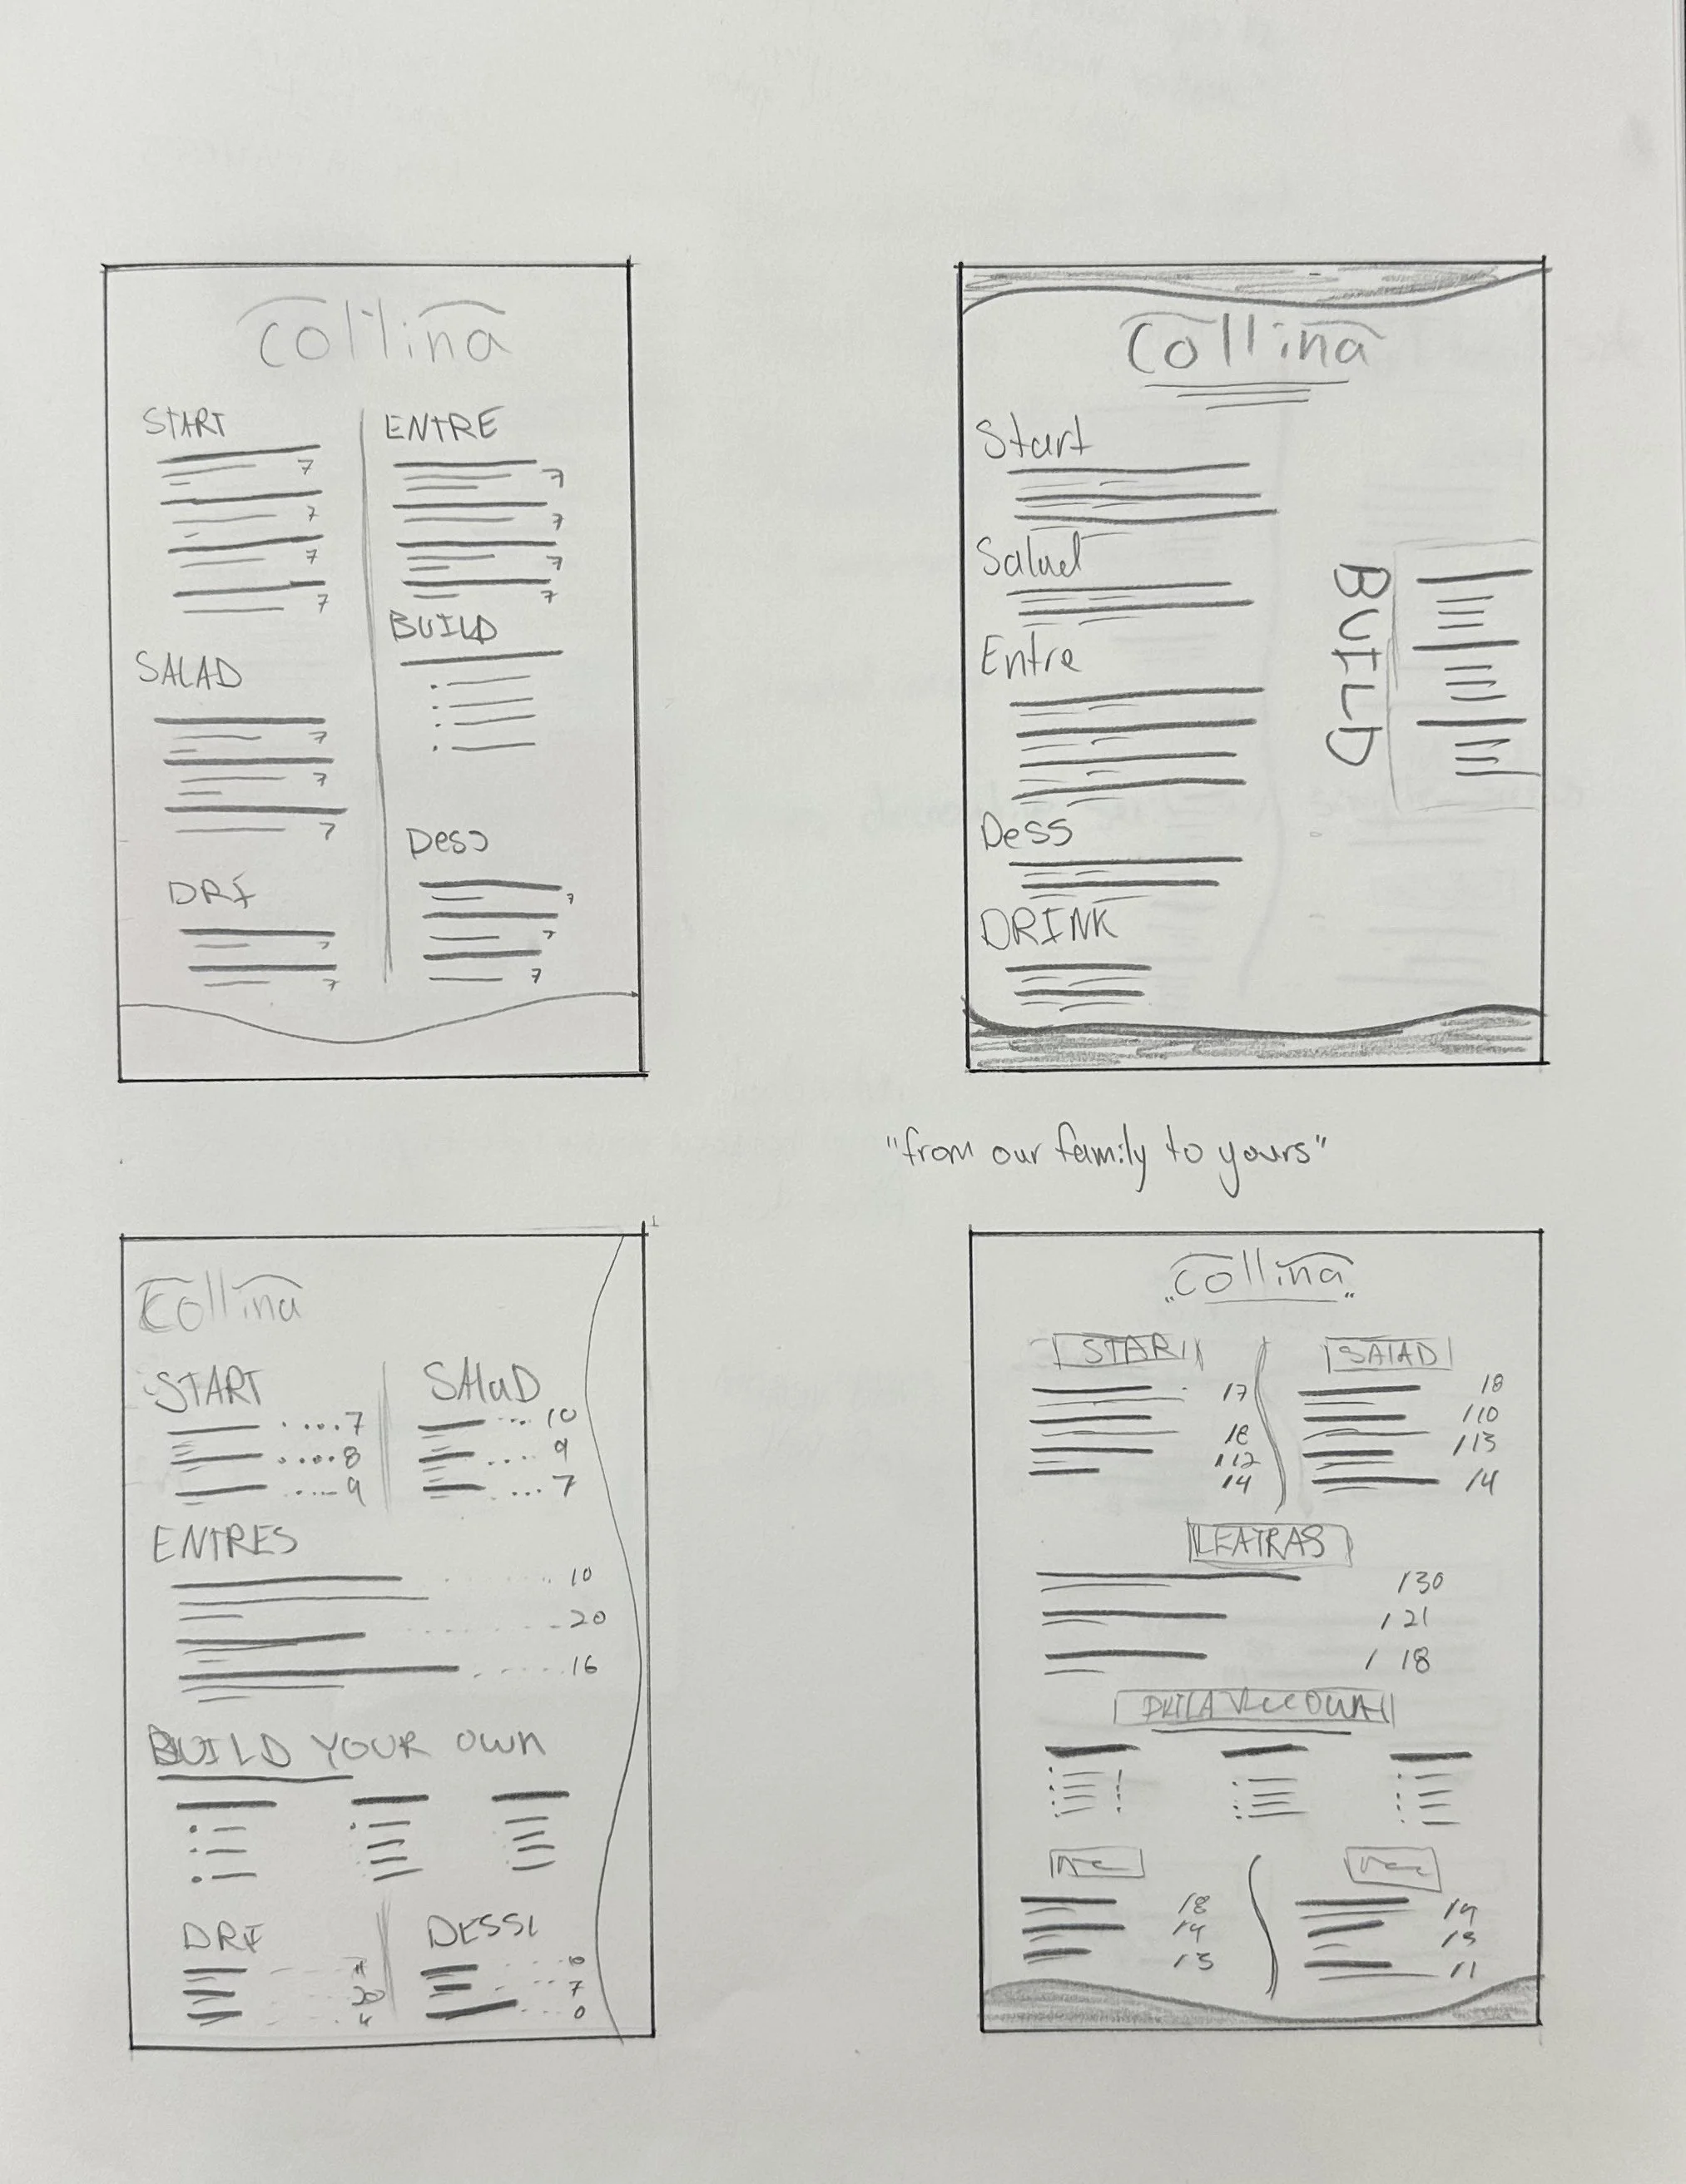 Collina
START
7
7
7
7
SALAD
7
7
7
DRI
7
7
ENTRE
7
7
7
7
BUILD
Dess
7
7
7
Collina
Start
Salad
Entre
Dess
DRINK
BUILD
"from our family to yours"
Collina
START
....7
....8
....9
SALaD
... 10
.... 9
...7
ENTRES
10
20
16
BUILD YOUR OWN
DRI
20
DESSE
7
0
"Collina"
START
17
18
112
14
SALAD
18
110
113
14
/30
/21
/ 18
18
14
13
19
11